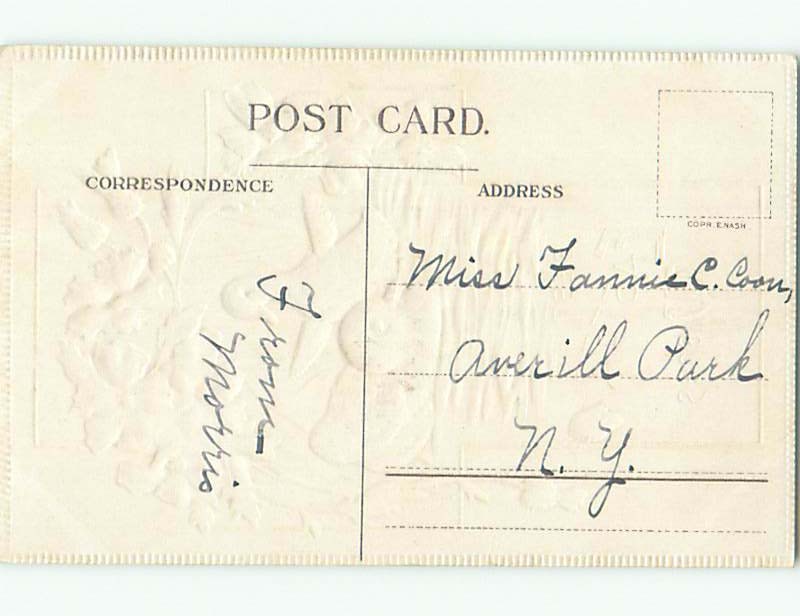 POST CARD.
CORRESPONDENCE
ADDRESS
COPR. E. NASH
From
Morris
Miss Fannie C. Coon,
Averill Park
N. Y.